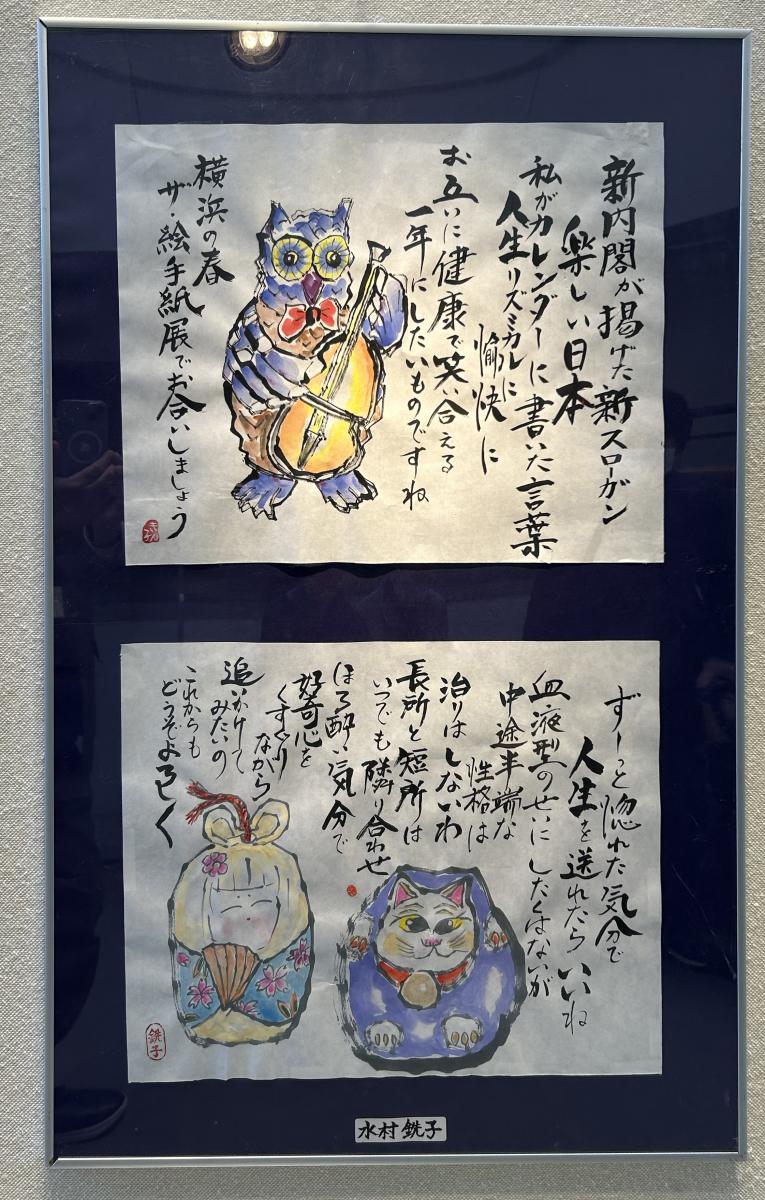 新内閣が掲げた新スローガン
楽しい日本
私がカレンダーに書いた言葉
人生リズミカルに
愉快に
お互いに健康で笑い合える
一年にしたいものですね
横浜の春
ザ・絵手紙展でお会いしましょう
ずーっと惚れた気分で
人生を送れたらいいね
血液型のせいにしたくはないが
中途半端な
性格は
治りはしないわ
長所と短所は
いつでも隣り合わせ
ほろ酔い気分で
好奇心を
くすぐりながら
追いかけて
みたいの
これからも
どうぞよろしく
銑子
水村銑子